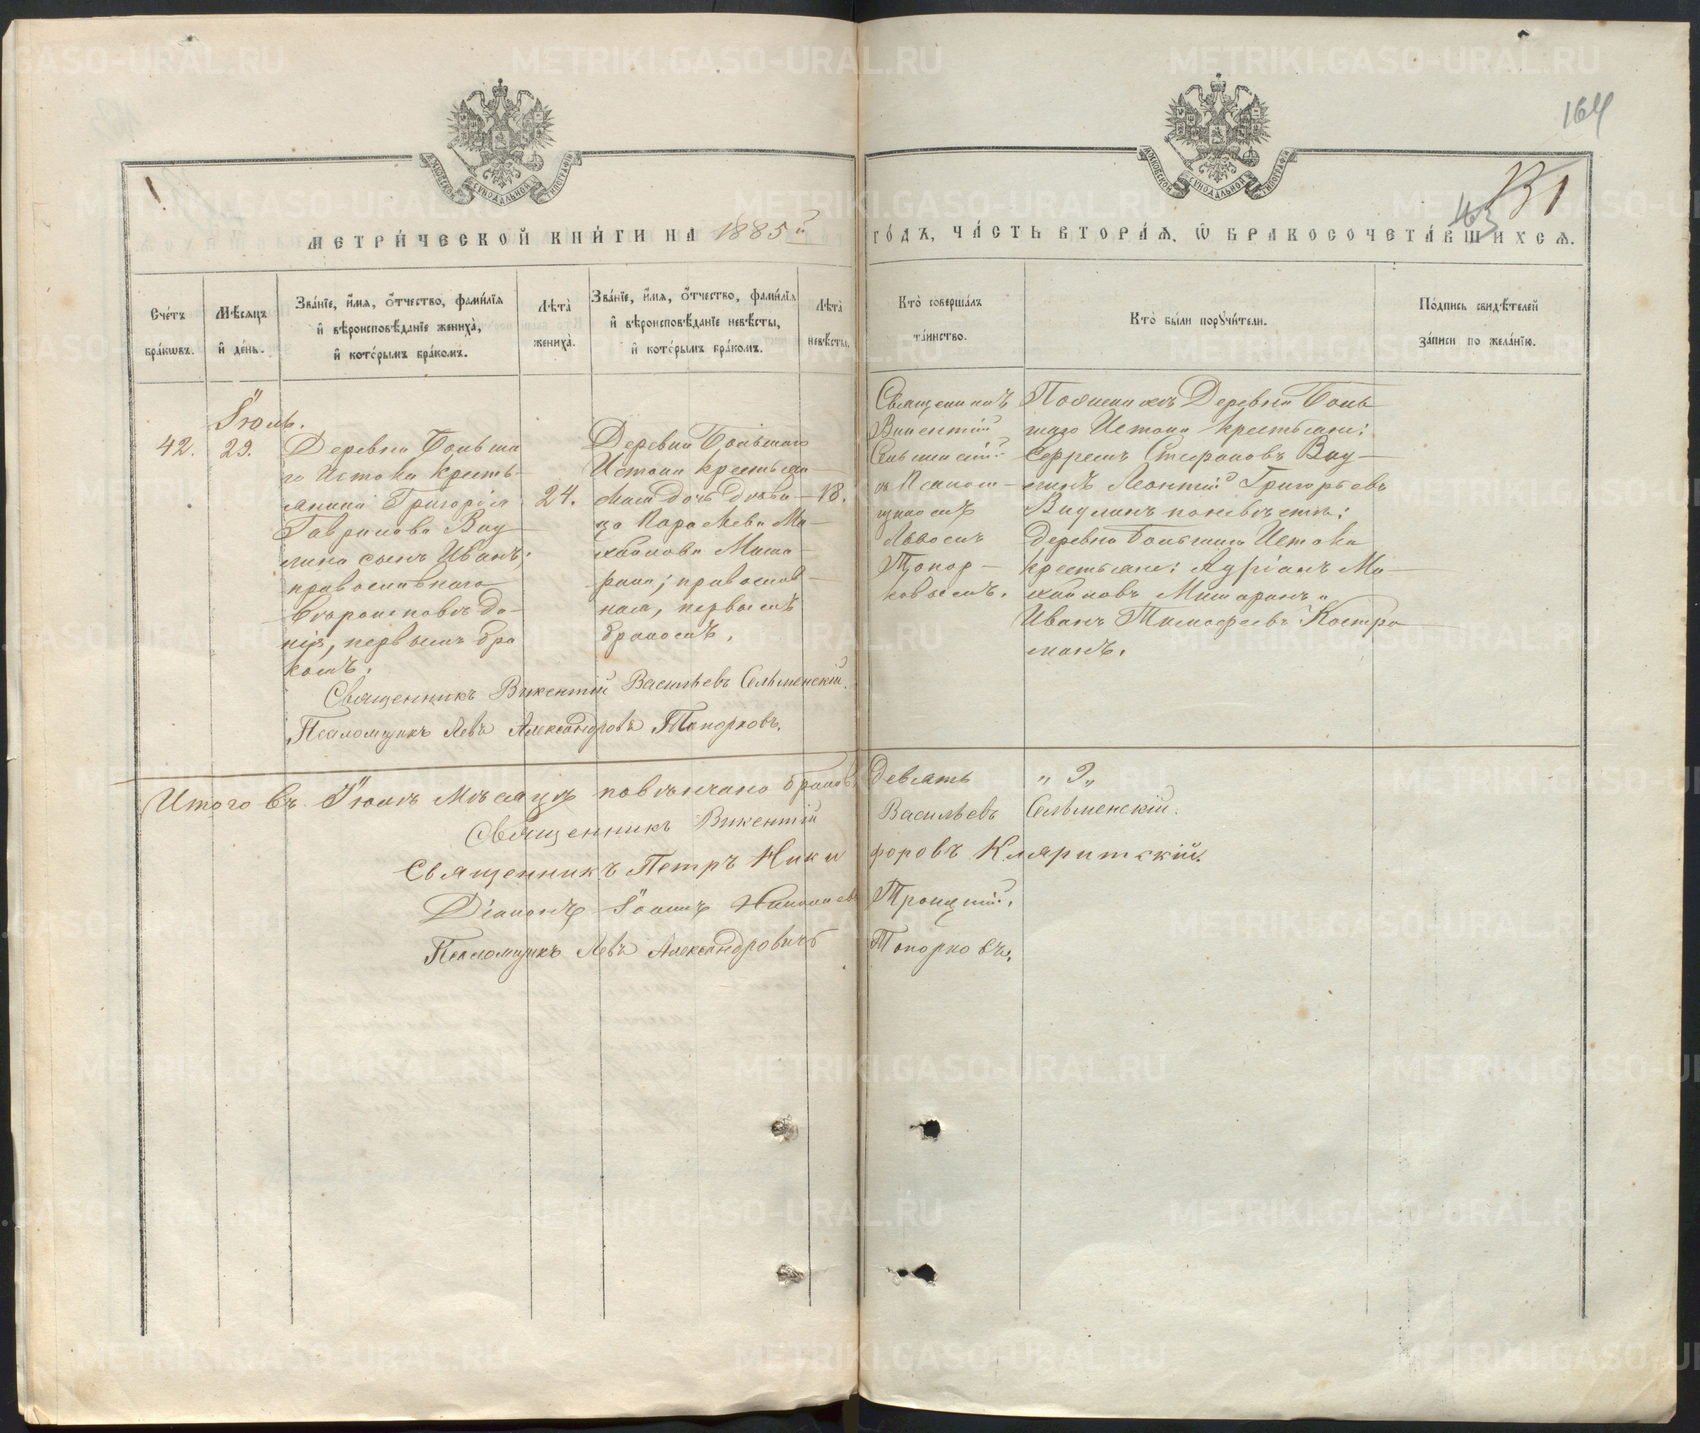 164
131
43
МЕТРИ́ЧЕСКОЙ КНИ́ГИ НА 1885й
ГО́ДЪ, ЧА́СТЬ ВТОРА́Я, Ѽ БРАКОСОЧЕТА́ВШИХСЯ.
МОСКОВСКОЙ СѴНОДАЛЬНОЙ ТИПОГРАФІИ
МОСКОВСКОЙ СѴНОДАЛЬНОЙ ТИПОГРАФІИ
Сче́тъ бра́ковъ.
Мѣ́сяцъ и҆ де́нь.
Зва́нїе, и҆́мя, ѻ҆́тчество, фами́лїя
и҆ вѣроисповѣ́данїе жениха̀,
и҆ кото́рымъ бра́комъ.
Лѣта̀ жениха̀.
Зва́нїе, и҆́мя, ѻ҆́тчество, фами́лїя
и҆ вѣроисповѣ́данїе невѣ́сты,
и҆ кото́рымъ бра́комъ.
Лѣта̀ невѣ́сты.
Кто̀ соверша́лъ та́инство.
Кто̀ бы́ли порꙋчи́тели.
По́дпись свидѣ́телей за́писи по жела́нїю.
Іюль.
42.
29.
Деревни Больша
го Истока кресть
янина Григорія
Гаврилова Ваг
лина сынъ Иванъ;
православнаго
вѣроисповѣда-
нія, первымъ бра
комъ.
24.
Деревни Большаго
Истока крестьян
дочь дѣви-
ца Параскева Ми-
хайлова Миша-
рина; православ-
ная, первымъ
бракомъ.
18.
Священникъ
Викентій
Сельменскій
съ Псалом-
щикомъ
Львомъ
Топор-
ковымъ.
По женихѣ Деревни Боль
шаго Истока крестьяне:
Ефремъ Стефановъ Ваг-
линъ Леонтій Григорьевъ
Ваглинъ по невѣстѣ:
деревни Большаго Истока
крестьяне: Адріанъ Ми-
хайловъ Мишаринъ и
Иванъ Тимофеевъ Костро-
минъ.
Священникъ Викентій Васильевъ Сельменскій.
Псаломщикъ Левъ Александровъ Топорковъ.
Итого въ Іюлѣ мѣсяцѣ повѣнчано браковъ девять „ 9„
Священникъ Викентій Васильевъ Сельменскій.
Священникъ Петръ Никифоровъ Кляритскій.
Діаконъ Іоаннъ Николаевъ Троицкій.
Псаломщикъ Левъ Александровичъ Топорковъ.
METRIKI.GASO-URAL.RU